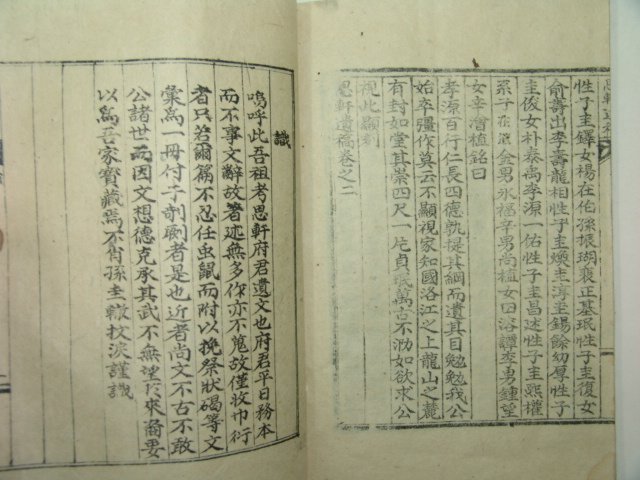 性子圭鐸女楊在伦孫振瑚裵正基珉性子圭復女
俞壽出李壽龍相性子圭煥圭淳圭錫餘幼厚性子
圭俊女朴泰禹李源一佑性子圭昌述性子圭熙權
系子金男永福辛男尚植女四洛譚李男鍾望
女辛澮植銘曰
孝源百行仁長四德孰提其綱而遺其目勉勉我公
始卒彊作莫云不顯視家知國洛江之上龍山之麓
有封如堂其崇四尺一片貞珉萬古不泐如欲求公
視此顯刻
思軒遺稿卷之二
識
嗚呼此吾祖考思軒府君遺文也府君平日務本
而不事文辭故著述無多作亦不蒐故僅收巾衍
者只若爾篇不忍任虫鼠而附以挽祭狀碣等文
彙爲一冊付子剞劂者是也近者尚文不古不敢
公諸世而因文想德克承其武不無望於來裔要
以爲吾家寶藏焉不肖孫圭轍抆淚謹識